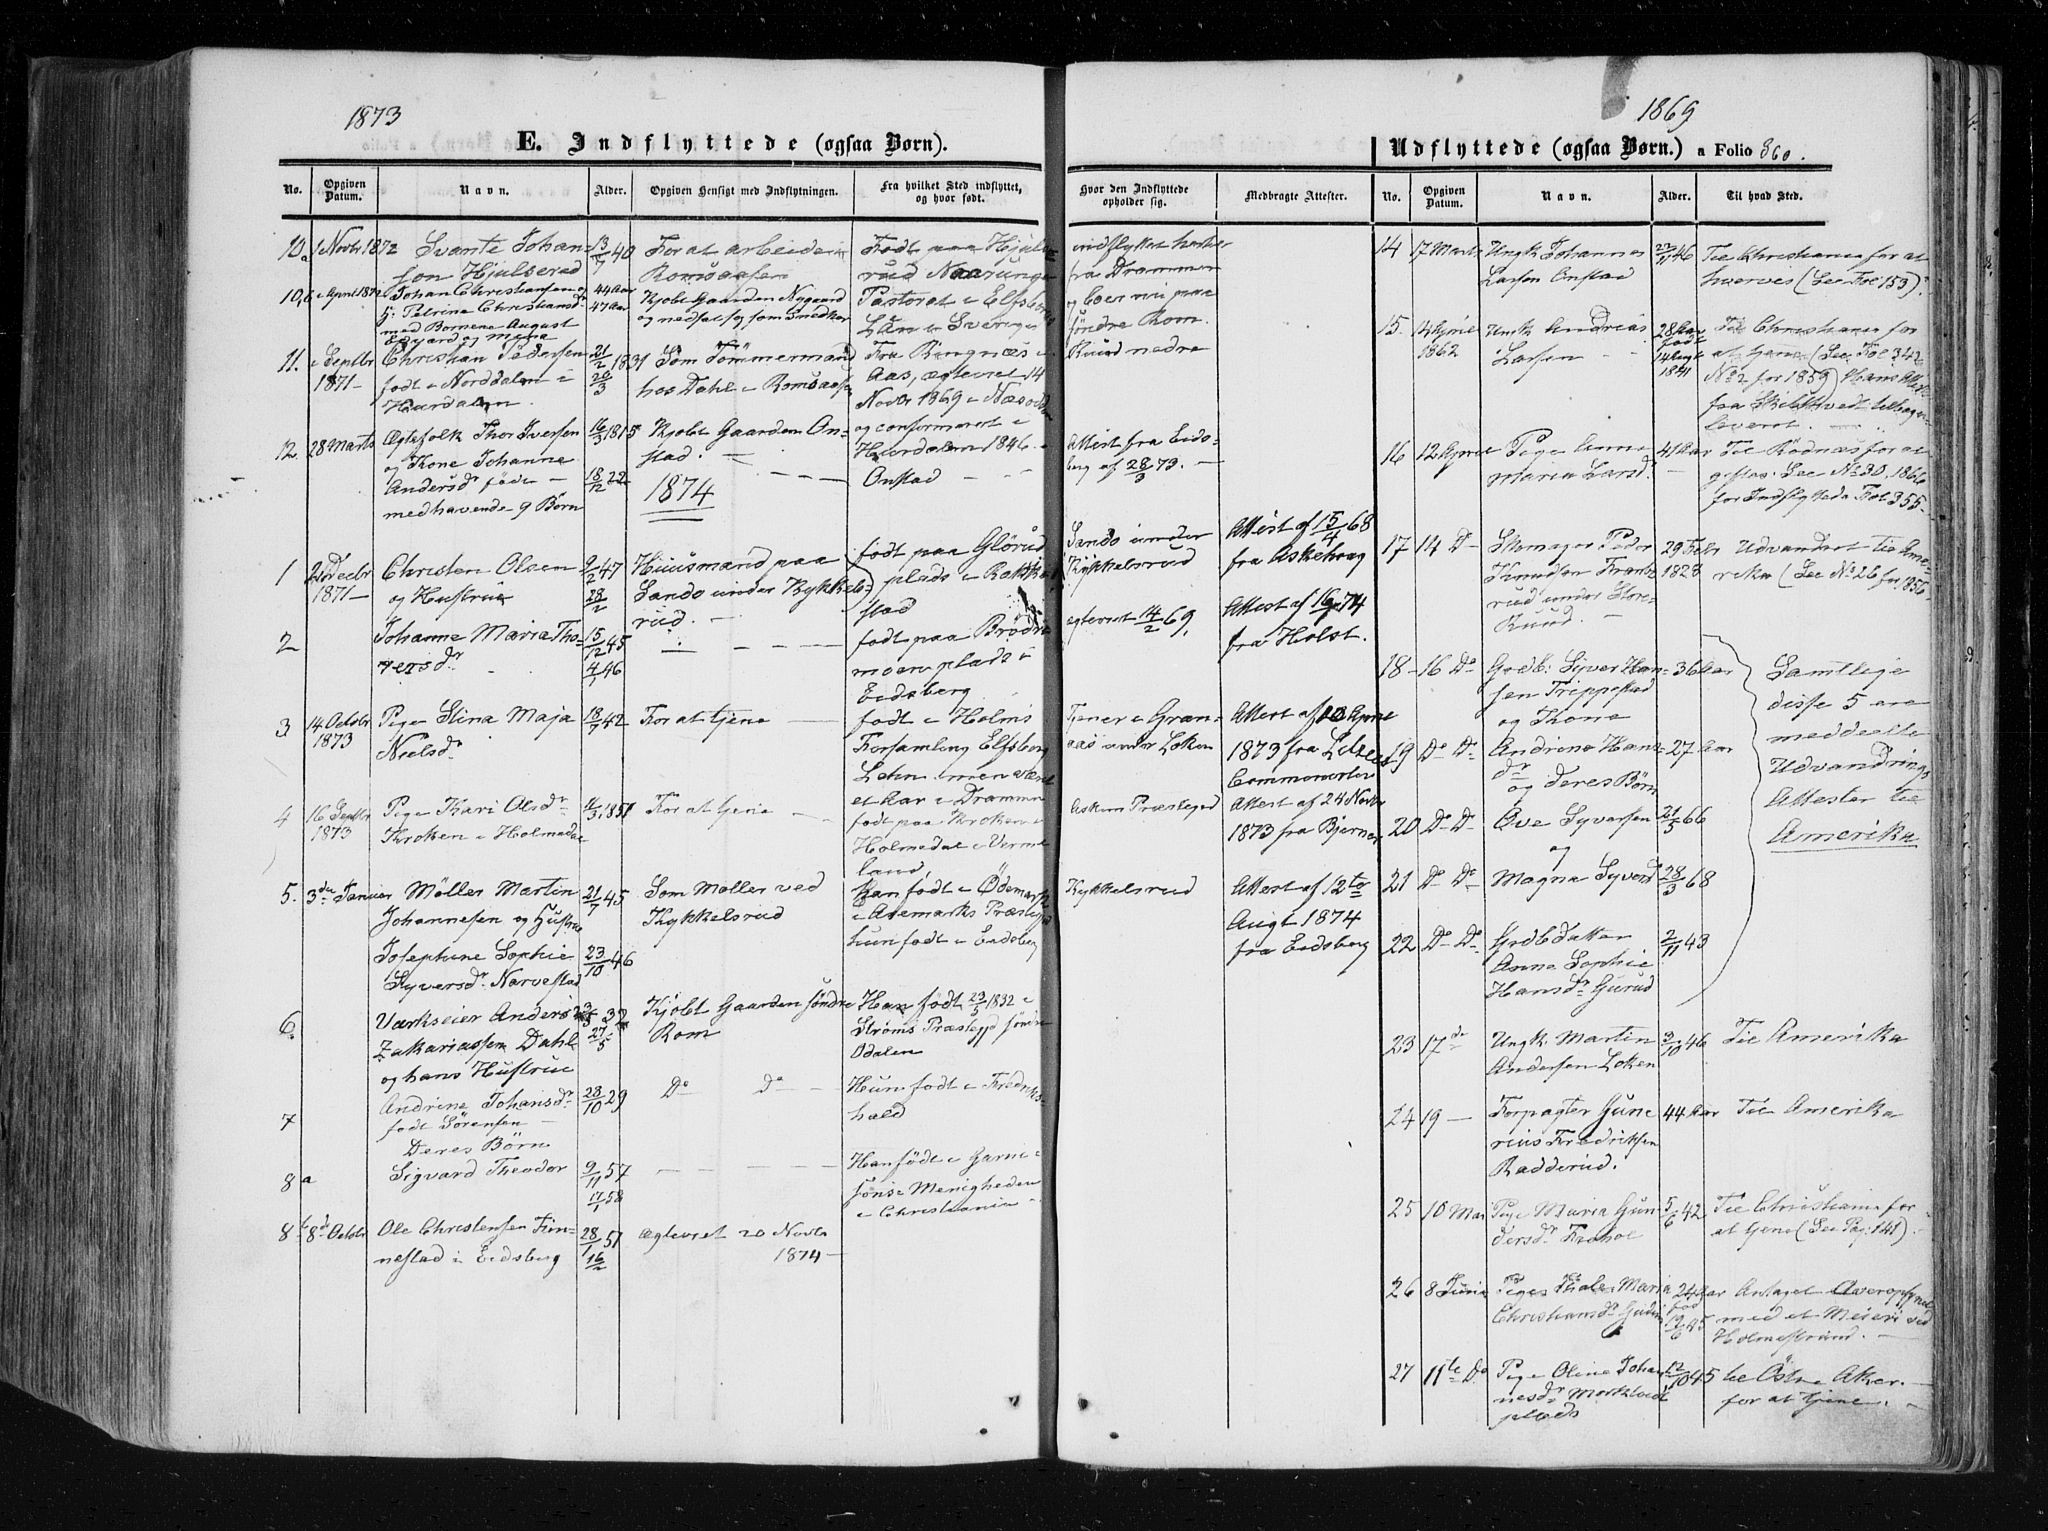 1873
E. Indflyttede (ogsaa Børn).
No.
Opgiven Datum.
Navn.
Alder.
Opgiven Hensigt med Indflytningen.
Fra hvilket Sted indflyttet, og hvor født.
Hvor den Indflyttede opholder sig.
Medbragte Attester.
10a 1 Novbr 1872 Svante Johan- 13/7 40 For at arbeide i Født paa Hjuls-
son Hjulserød Romsaasen rud
10,b April 187 Johan Christiansen og 44 Aar Kjøbt Gaarden Nygaard Pastorat i Elfsborgs
H: Petrine Christiansdr 47 Aar og nedsat sig som Snedker Län i Sverige
med Børnene August
indflyttet
fra Drammen
og boer nu paa
søndre Rom.
Ruud nedre
11. Septbr Christian Pedersen 21/2 1831 Som Tømmermand Fra Ringnæs i
1871 - født i Norddalen i 20/3 hos Dahl i Romsaasen Aas, ægteviet 14
Hurdalen Novbr 1869 i Næsodden
og confirmeret i
Hurdalen 1846 -
12. 28 Marts Ægtefolk Thor Iversen 16/3 1815 Kjøbt Gaarden On- Onstad
og Kone Johanne stad. -
Andersdr født - 18/12 22
medhavende 9 Børn
Attest fra Eids-
berg af 28/3 73. -
1874
1 Decbr Christen Olsen 9/2 47 Huusmand paa født paa Glørud
1871 - og Hustrue 28/2 Sando under Kykkels- plads i Rakke-
rud. - stad
Sando under Attest af 15/4 68
Kykkelsrud fra Askehoug
2 Johanne Maria Tho- 15/12 45 født paa
versdr 4/1 46 moen plads i
Eidsberg
ægteviet 14/2 69, Attest af 74
fra Holst.
3 14 Octobr Pige Stina Maja 13/7 42 For at tjene - født i Holms
1873 Nielsdr Forsamling Elfsborg
Lehn men været
et Aar i Drammen
Tjener i Gran- Attest af 10 April
aas under Løken 1873 fra
4 16 Septbr Pige Kari Olsdr 11/3 1851 For at tjene - født paa Kroken i
1873 Kroken i Holmedal Holmedal i Verme-
land,
Askim Præstegjd Attest af 24 Novbr
1873 fra
5. 3die Januar Møller Martin 21/7 45 Som Møller ved han født i Ødemark
Johannesen og Hustrue Kykkelsrud i Aremarks Præstegjd
Josephine Sophie 23/10 46 hun født i Eidsberg
Syversdr Narvestad
Kykkelsrud Attest af 12te
Augt 1874
fra Eidsberg
6. Værkseier Anders 32 Kjøbt Gaarden søndre Han født 23/5 1832 i
Zakariassen Dahl 27/5 Rom Strøms Præstegjd søndre
og hans Hustrue Odalen
7 Andrine Johansdr 28/10 29 Do Do - Hun født i Fredriks-
født Sørensen - hald
Deres Børn
8a Sigvard Theodor 9/11 57 - - - Han født i Garni-
17/1 58 sons Menigheden
i Christiania -
8b 8de Octobr Ole Christensen Fin- 28/1 51 ægteviet 20 Novbr
nestad i Eidsberg 16/2 1874 -
1869
Udflyttede (ogsaa Børn.) a Folio 360.
No.
Opgiven Datum.
Navn.
Alder.
Til hvad Sted.
14 17 Marts Ungk Johannes 22/11 46 Til Christiania for at
Larsen Onstad hverves (See Fol 153).
15. 14 April Ungk Andreas 28 Aar Til Christiania for
1862 Larsen - - født at tjene (See Fol 342
14 Augt No 2 for 1859) Hans Attest
1841 fra Skibthvedt tilbage-
leveret. -
16 12 April Pige Anne 41 Aar Til Rødnæs for at
Maria Larsdr - giftes. See No 30, 1866
for Indflyttede Fol 355 -
17 14 Do Skomager Peder 29 Febr Udvandret til Ame-
Knudsen 1828 rika (See No 26 for 1856
rud under Store-
Ruud. -
18 - 16 Do Gaardb: Syver Han- 36 Aar
sen Trippestad
og Kone
19 Do Do Andrine Hans- 27 Aar
dr og deres Børn
20 Do Do Ove Syversen 21/5 66
og
21 Do Do Magna Syversd 28/3 68
22 Do Do Grdb datter 2/11 43
Anne Sophie
Hansdr Gurud
Samtlige
disse 5 ere
meddeelte
Udvandrings
Attester til
Amerika
23 17de Ungk. Martin 3/10 46 Til Amerika
Andersen Løken
24 19 - Forpagter Gune- 44 Aar Til Amerika
rius Fredriksen
Radderud.
25 10 Mai Pige Maria Gun- 5/6 42 Til Christiania for
dersdr Frøhol at tjene (See Pag: 141)
26 8 Juni Pige Maria 24 Aar Antaget
Christiansdr fød med et Meieri ved
19/6 45 Holmestrand. -
27 11te Do Pige Oline Johan- 12/10 45 til Østre Aker. -
nesdr for at tjene.
plads